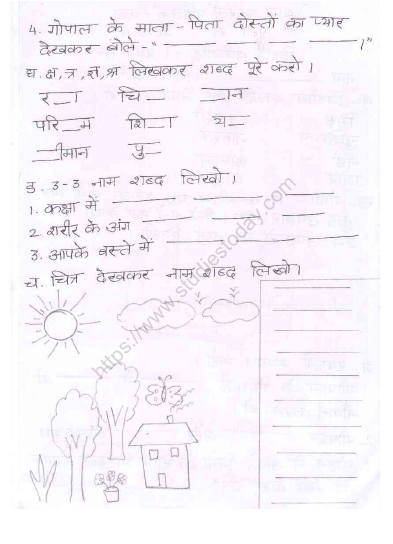 4. गोपाल के माता - पिता दोस्तों का प्यार
देखकर बोले-" ____ ____ ____ ।"
घ. क्ष, त्र, ज्ञ, श्र लिखकर शब्द पूरे करो।
र__ा चि__ __ान
परि__म शि__ा य__
__ीमान पु__
ङ. 3-3 नाम शब्द लिखो।
1. कक्षा में ____ ____ ____
2. शरीर के अंग ____ ____ ____
3. आपके बस्ते में ____ ____ ____
च. चित्र देखकर नाम शब्द लिखो।
https://www.studiestoday.com